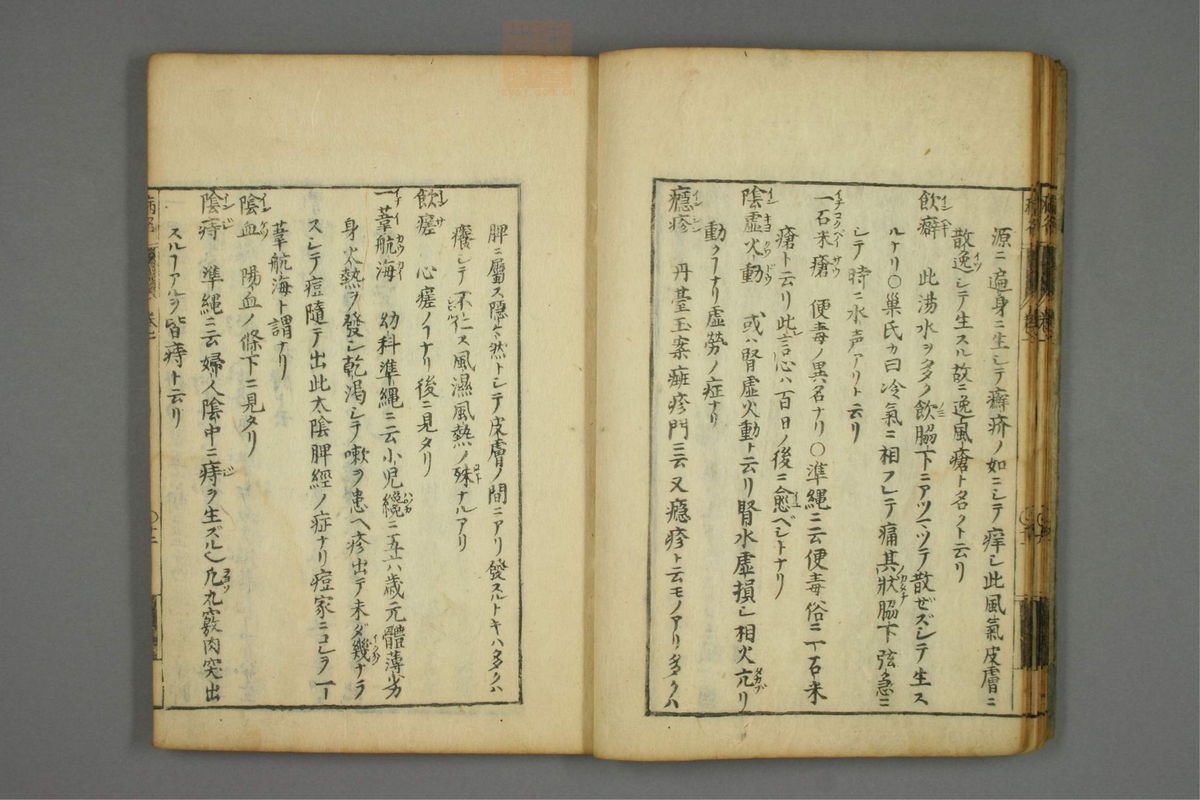 源ニ遍身ニ生シテ癬疥ノ如ニシテ痒シ此風氣皮膚ニ
散逸シテ生スル故ニ逸風瘡ト名クト云リ
飲癖 此湯水ヲ多ク飲脇下ニアツマツテ散ゼズシテ生ス
ルケリ〇巣氏カ曰冷氣ニ相フレテ痛其狀脇下弦急ニ
シテ時ニ水声アリト云リ
一石米瘡 便毒ノ異名ナリ〇準縄ニ云便毒俗ニ一石米
瘡ト云リ此言心ハ百日ノ後ニ愈ベシトナリ
陰虚火動 或ハ腎虚火動ト云リ腎水虚損シ相火亢リ
動クナリ虚勞ノ症ナリ
癮疹 丹臺玉案癍疹門ニ云又癮疹ト云モノアリ多クハ
脾ニ屬ス隠々然トシテ皮膚ノ間ニアリ發スルトキハ多クハ
癢シテ不仁ス風濕風熱ノ殊ナルアリ
飲瘧 心瘧ノフナリ後ニ見タリ
一葦航海 幼科準縄ニ云小児纔ニ五六歳元體薄劣
身大熱ヲ發シ乾渇シテ嗽ヲ患ヘ疹出テ未ダ幾ナラ
スシテ痘隨テ出此太陰脾經ノ症ナリ痘家ニコレヲ一
葦航海ト謂ナリ
陰血 陽血ノ條下ニ見タリ
陰痔 準縄ニ云婦人陰中ニ痔ヲ生ズル凡九竅肉突出
スルフアルヲ皆痔ト云リ